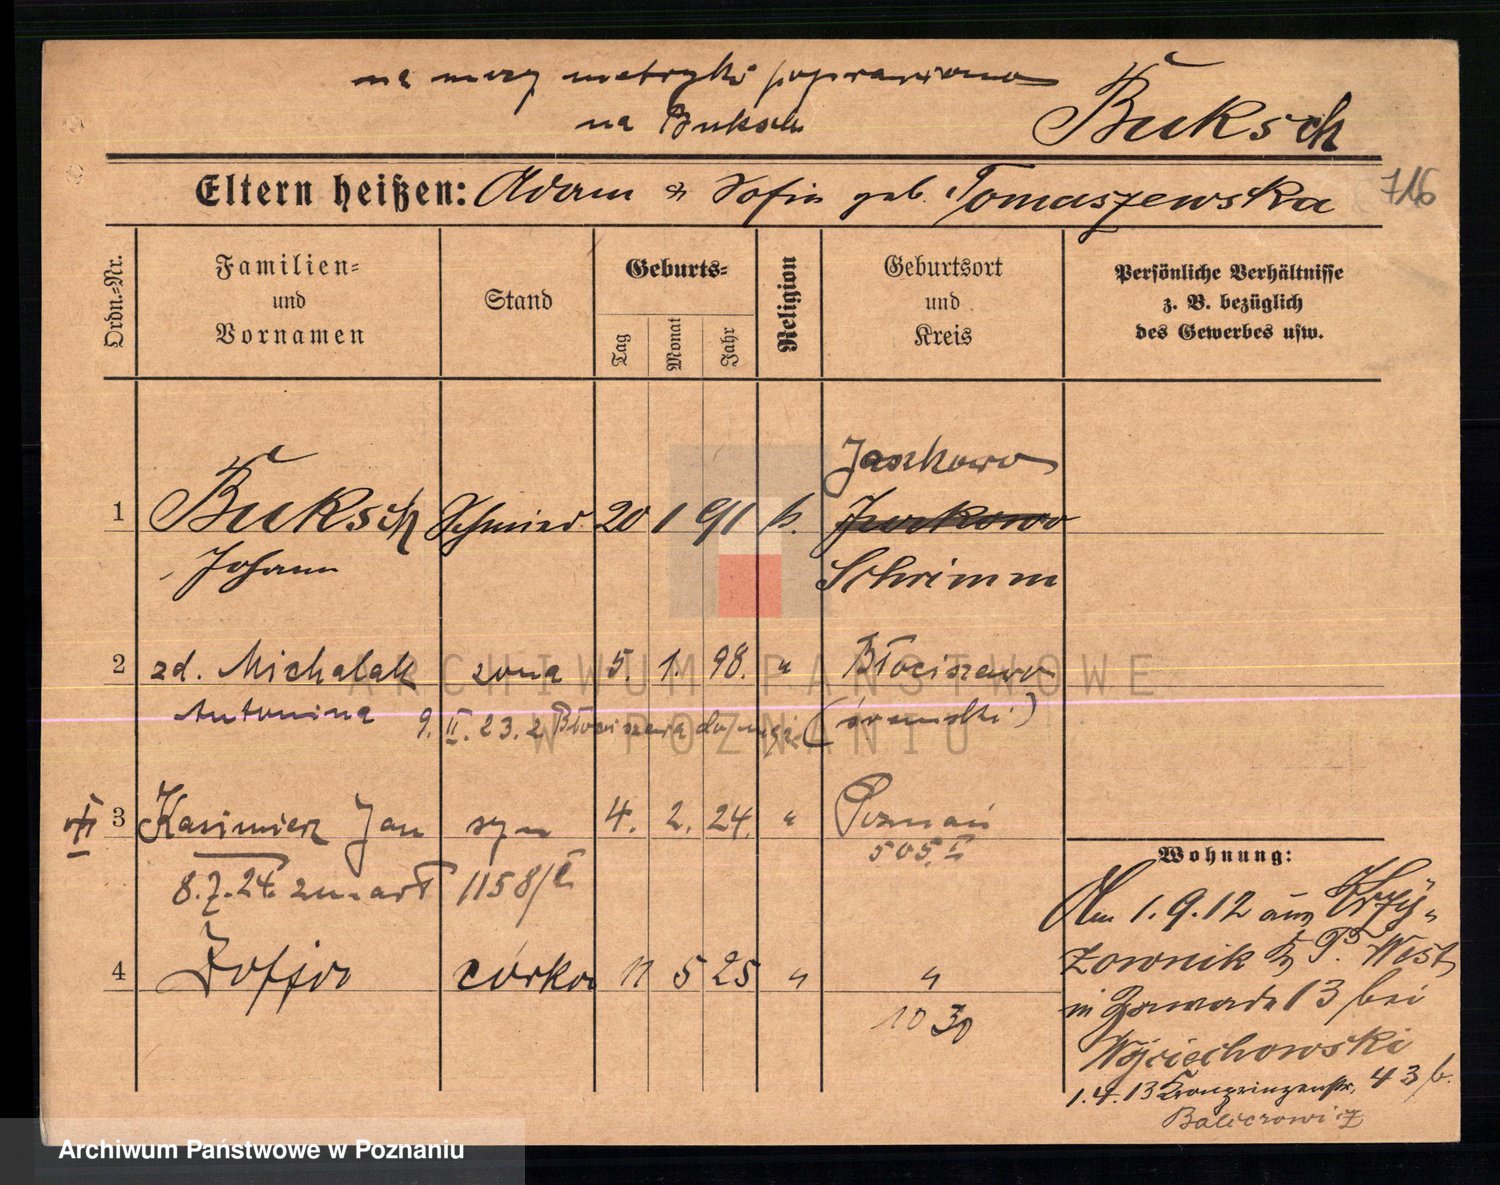 na mocy metryki poprawiono
na Buksch
Buksch
Eltern heißen: Adam & Sofia geb. Tomaszewska
716
Ordn.-Nr.
Familien-
und
Vornamen
Stand
Geburts-
Tag
Monat
Jahr
Religion
Geburtsort
und
Kreis
Persönliche Verhältnisse
z. B. bezüglich
des Gewerbes usw.
Jaszkowo
1 Buksch Schmied 20 1 91 k. Jurkowo
Johann Schrimm
2 zd. Michalak żona 5. 1. 98. " Błociszewo
Antonina 9. II. 23. z Błociszewa do męża (śremski)
3 Kasimierz Jan syn 4. 2. 24. " Poznań
505. I
8.7.24. zmarł 1158/
4 Zofja córka 11 5 25 " "
10 30
Wohnung:
Am 1.9.12 aus Krzy-
żownik Kr. P. West
in Zawade 13 bei
Wojciechowski
1.4.13 Kronprinzenstr. 43 b.
Balcerowicz
ARCHIWUM PAŃSTWOWE
W POZNANIU
Archiwum Państwowe w Poznaniu